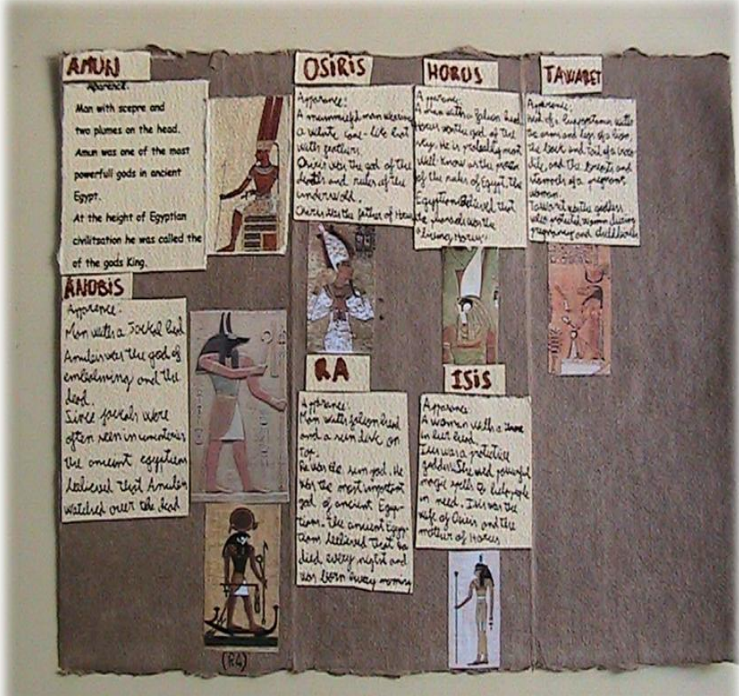 AMUN
Aparence:
Man with scepre and
two plumes on the head.
Amun was one of the most
powerfull gods in ancient
Egypt.
At the height of Egyptian
civilitsation he was called the
of the gods King.
ANOBIS
Apparence:
Man with a Jackal head
Anubis was the god of
embalming and the
dead.
Since jackals were
often seen in cementeries
the ancient egyptians
believed that Anubis
watched over the dead
OSIRIS
Apparance:
A mummified man wearing
a white cone-like hat
with feathers.
Osiris was the god of the
death and ruler of the
underworld.
Osiris was the father of Horus
RA
Apparance:
Man with falcon head
and a sun disk on
top.
He was the sun god. He
was the most important
god of ancient Egyp-
tians. The ancient Egyp-
tians believed that Ra
died every night and
was born every morning
(RA)
HORUS
Apparence:
A man with a falcon head
Horus was the god of the
sky. He is probably most
well-know as the protec
of the ruler of Egypt. The
Egyptians believed that
the pharaoh was the
"living Horus".
ISIS
Apparance:
A women with a
in her head.
Isis was a protective
goddess. She used powerful
magic spells to help people
in need. Isis was the
wife of Osiris and the
mother of Horus
TAWARET
Apparence:
head of a hippopotamus with
the arms and legs of a lion,
the back and tail of a croco-
dile, and the breasts and
stomach of a pregnant
woman.
Tawaret was the goddess
who protected women during
pregnancy and childbirth